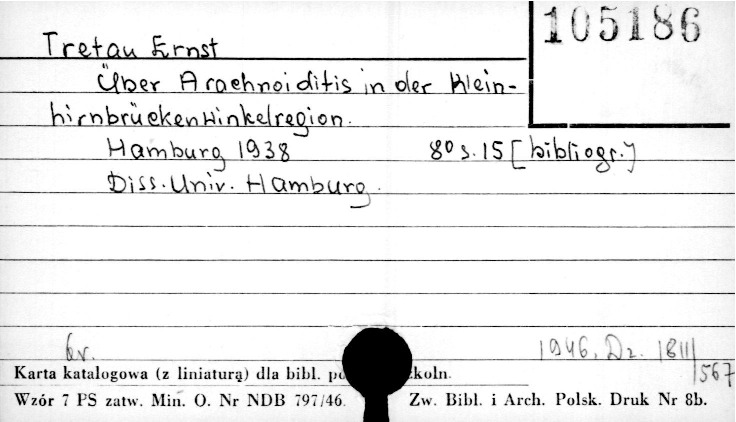 105186
Tretau Ernst
Über Arachnoiditis in der Klein-
hirnbrückenwinkelregion.
Hamburg 1938 8° s. 15 [bibliogr.]
Diss. Univ. Hamburg.
br. 1946, Dz. 1811/567
Karta katalogowa (z liniaturą) dla bibl. po koln.
Wzór 7 PS zatw. Min. O. Nr NDB 797/46. Zw. Bibl. i Arch. Polsk. Druk Nr 8b.